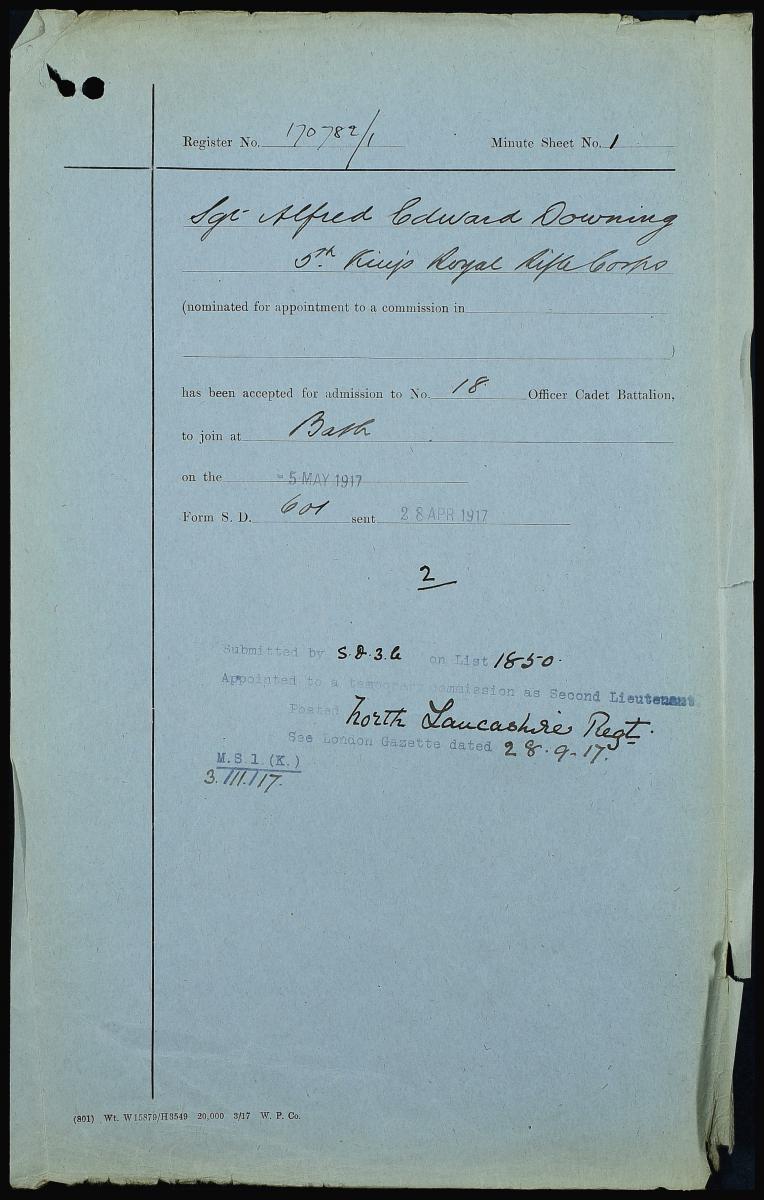 Register No. 170782/1 Minute Sheet No. 1
Sgt Alfred Edward Downing
5th King's Royal Rifle Corps
(nominated for appointment to a commission in
)
has been accepted for admission to No. 18 Officer Cadet Battalion,
to join at Bath
on the - 5 MAY 1917
Form S. D. 601 sent 28 APR 1917
2
Submitted by S.D.3.C on List 1850.
Appointed to a temporary commission as Second Lieutenant
Posted North Lancashire Regt.
See London Gazette dated 28.9.17.
M.S.1.(K.)
3./11./17.
(801) Wt. W15879/H3549 20,000 3/17 W. P. Co.